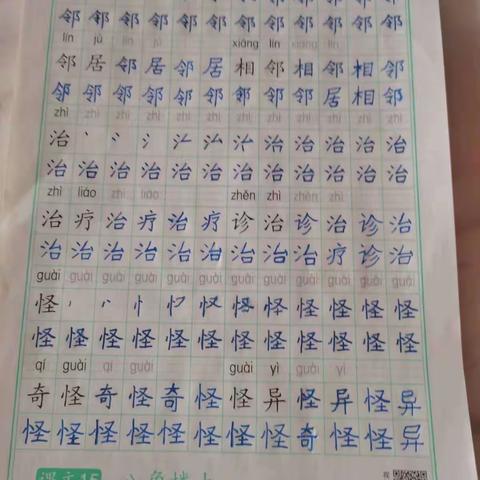 邻 邻 邻 邻 邻 邻 邻 邻 邻 邻 邻 邻
lín jū lín jū xiāng lín xiāng lín
邻 居 邻 居 邻 居 相 邻 相 邻 相 邻
邻 邻 邻 邻 邻 邻 邻 邻 邻 居 相 邻
zhì zhì zhì zhì zhì zhì zhì zhì zhì zhì zhì zhì
治 治 治 治 治 治
治 治 治 治 治 治 治 治 治 治 治 治
zhì liáo zhì liáo zhěn zhì zhěn zhì
治 疗 治 疗 治 疗 诊 治 诊 治 诊 治
治 治 治 治 治 治 治 治 治 疗 诊 治
guài guài guài guài guài guài guài guài guài guài guài guài
怪 怪 怪 怪 怪 怪
怪 怪 怪 怪 怪 怪 怪 怪 怪 怪 怪 怪
qí guài qí guài guài yì guài yì
奇 怪 奇 怪 奇 怪 怪 异 怪 异 怪 异
怪 怪 怪 怪 怪 怪 怪 怪 奇 怪 怪 异
课文 15